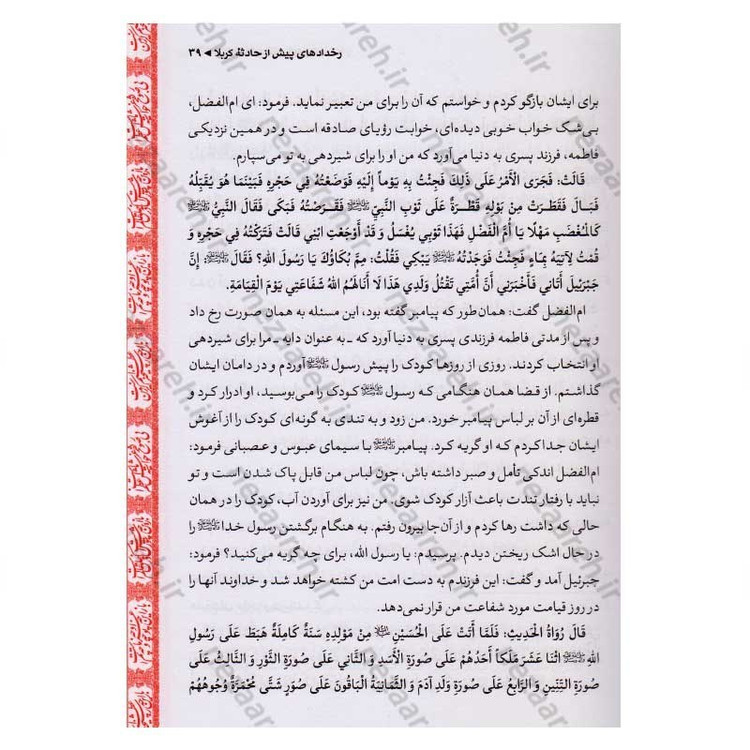 رخدادهای پیش از حادثهٔ کربلا ◄ ۳۹
برای ایشان بازگو کردم و خواستم که آن را برای من تعبیر نماید. فرمود: ای ام‌الفضل،
بی‌شک خواب خوبی دیده‌ای، خوابت رؤیای صادقه است و در همین نزدیکی
فاطمه، فرزند پسری به دنیا می‌آورد که من او را برای شیردهی به تو می‌سپارم.
قَالَتْ: فَجَرَى الْأَمْرُ عَلَى ذَلِكَ فَجِئْتُ بِهِ يَوْماً إِلَيْهِ فَوَضَعْتُهُ فِي حَجْرِهِ فَبَيْنَمَا هُوَ يُقَبِّلُهُ
فَبَالَ فَقَطَرَتْ مِنْ بَوْلِهِ قَطْرَةٌ عَلَى ثَوْبِ النَّبِيِّ ﷺ فَقَرَصْتُهُ فَبَكَى فَقَالَ النَّبِيُّ ﷺ
كَالْمُغْضَبِ مَهْلًا يَا أُمَّ الْفَضْلِ فَهَذَا ثَوْبِي يُغْسَلُ وَ قَدْ أَوْجَعْتِ ابْنِي قَالَتْ فَتَرَكْتُهُ فِي حَجْرِهِ وَ
قُمْتُ لِآتِيَهُ بِمَاءٍ فَجِئْتُ فَوَجَدْتُهُ ﷺ يَبْكِي فَقُلْتُ: مِمَّ بُكَاؤُكَ يَا رَسُولَ اللهِ؟ فَقَالَ ﷺ: إِنَّ
جَبْرَئِيلَ أَتَانِي فَأَخْبَرَنِي أَنَّ أُمَّتِي تَقْتُلُ وَلَدِي هَذَا لَا أَنَالَهُمُ اللهُ شَفَاعَتِي يَوْمَ الْقِيَامَةِ.
ام‌الفضل گفت: همان‌طور که پیامبر گفته بود، این مسئله به همان صورت رخ داد
و پس از مدتی فاطمه فرزندی پسری به دنیا آورد که ـ به عنوان دایه ـ مرا برای شیردهی
او انتخاب کردند. روزی از روزها کودک را پیش رسول ﷺ آوردم و در دامان ایشان
گذاشتم. از قضا همان هنگامی که رسول ﷺ کودک را می‌بوسید، او ادرار کرد و
قطره‌ای از آن بر لباس پیامبر خورد. من زود و به تندی به گونه‌ای کودک را از آغوش
ایشان جدا کردم که او گریه کرد. پیامبر ﷺ با سیمای عبوس و عصبانی فرمود:
ام‌الفضل اندکی تأمل و صبر داشته باش، چون لباس من قابل پاک شدن است و تو
نباید با رفتار تندت باعث آزار کودک شوی. من نیز برای آوردن آب، کودک را در همان
حالی که داشت رها کردم و از آن‌جا بیرون رفتم. به هنگام برگشتن رسول خدا ﷺ را
در حال اشک ریختن دیدم. پرسیدم: یا رسول الله، برای چه گریه می‌کنید؟ فرمود:
جبرئیل آمد و گفت: این فرزندم به دست امت من کشته خواهد شد و خداوند آنها را
در روز قیامت مورد شفاعت من قرار نمی‌دهد.
قَالَ رُوَاةُ الْحَدِيثِ: فَلَمَّا أَتَتْ عَلَى الْحُسَيْنِ مِنْ مَوْلِدِهِ سَنَةٌ كَامِلَةٌ هَبَطَ عَلَى رَسُولِ
اللهِ ﷺ اثْنَا عَشَرَ مَلَكاً أَحَدُهُمْ عَلَى صُورَةِ الْأَسَدِ وَ الثَّانِي عَلَى صُورَةِ الثَّوْرِ وَ الثَّالِثُ عَلَى
صُورَةِ التِّنِّينِ وَ الرَّابِعُ عَلَى صُورَةِ وَلَدِ آدَمَ وَ الثَّمَانِيَةُ الْبَاقُونَ عَلَى صُوَرٍ شَتَّى مُحْمَرَّةً وُجُوهُهُمْ
nezaareh.ir